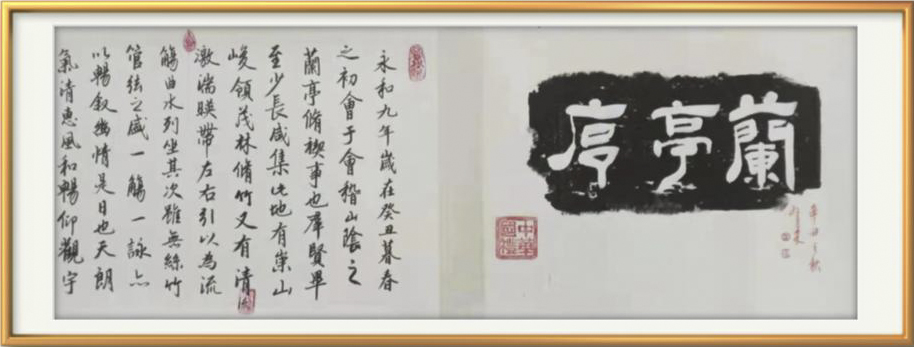 蘭亭序
中華國禮
永和九年歲在癸丑暮春
之初會于會稽山陰之
蘭亭脩禊事也羣賢畢
至少長咸集此地有崇山
峻領茂林脩竹又有清
激湍暎帶左右引以為流
觴曲水列坐其次雖無絲竹
管弦之盛一觴一詠亦
以暢叙幽情是日也天朗
氣清惠風和暢仰觀宇